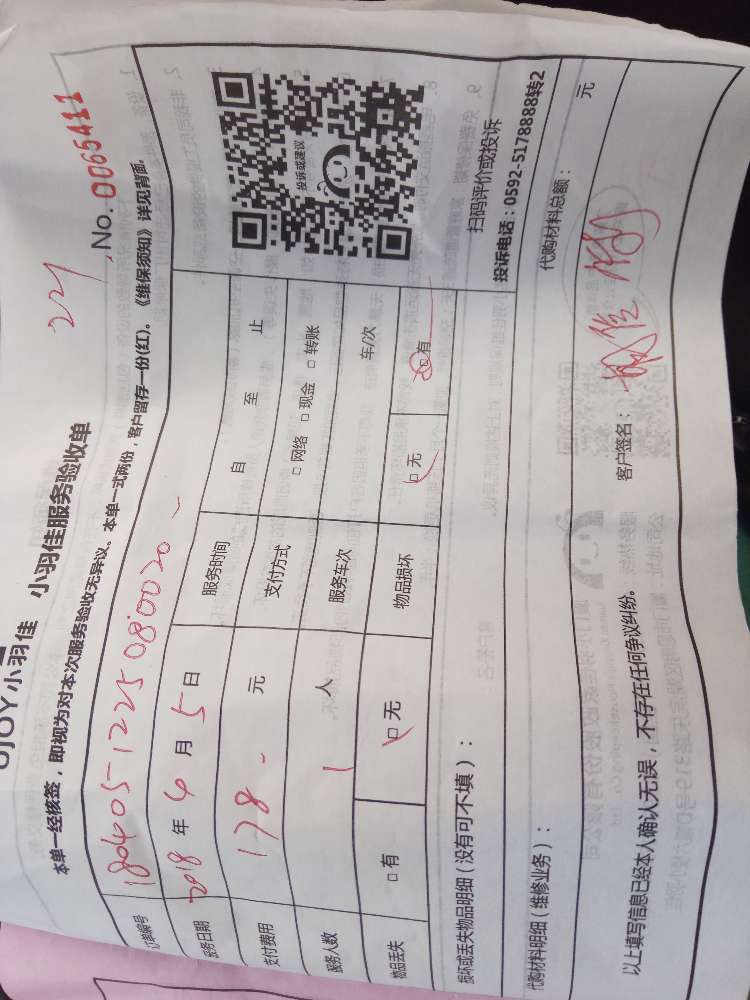 UJOY小羽佳 小羽佳服务验收单
221
No. 0065411
本单一经核签，即视为对本次服务验收无异议。本单一式两份，客户留存一份(红)。《维保须知》详见背面。
订单编号 180405122508:0020
服务日期 2018 年 4 月 5 日 服务时间 自 至 止
支付费用 178 元 支付方式 □ 网络 □ 现金 □ 转账
服务人数 1 人 服务车次 车/次
物品丢失 □ 有 □ 无 物品损坏 □ 无 □ 有
投诉或建议
扫码评价或投诉
投诉电话：0592-5178888转2
损坏或丢失物品明细（没有可不填）：
代购材料明细（维修业务）： 代购材料总额： 元
以上填写信息已经本人确认无误，不存在任何争议纠纷。 客户签名：